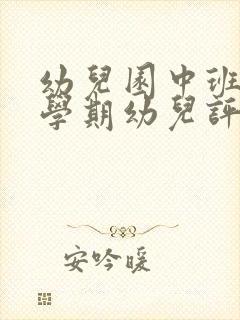 幼兒園中班
學期幼兒評
安吟暖